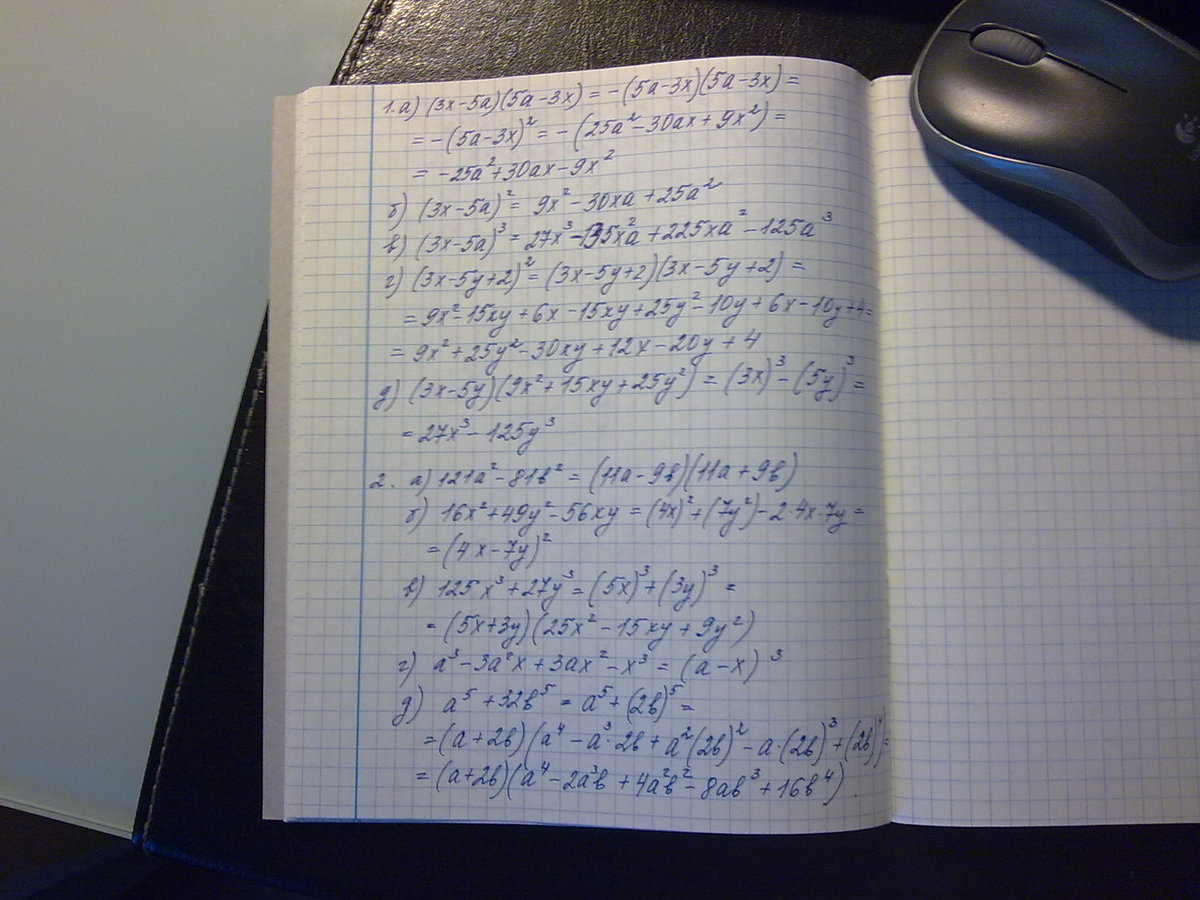 1. а) (3x-5a)(5a-3x) = -(5a-3x)(5a-3x) =
= -(5a-3x)² = -(25a²-30ax+9x²) =
= -25a²+30ax-9x²
б) (3x-5a)² = 9x²-30xa+25a²
в) (3x-5a)³ = 27x³-135x²a+225xa²-125a³
г) (3x-5y+2)² = (3x-5y+2)(3x-5y+2) =
= 9x²-15xy+6x-15xy+25y²-10y+6x-10y+4=
= 9x²+25y²-30xy+12x-20y+4
д) (3x-5y)(9x²+15xy+25y²) = (3x)³-(5y)³ =
= 27x³-125y³
2. а) 121a²-81в² = (11a-9в)(11a+9в)
б) 16x²+49y²-56xy = (4x)²+(7y²)-2·4x·7y =
= (4x-7y)²
в) 125x³+27y³ = (5x)³+(3y)³ =
= (5x+3y)(25x²-15xy+9y²)
г) a³-3a²x+3ax²-x³ = (a-x)³
д) a⁵+32в⁵ = a⁵+(2в)⁵ =
= (a+2в)(a⁴-a³·2в+a²(2в)²-a·(2в)³+(2в)⁴)=
= (a+2в)(a⁴-2a³в+4a²в²-8aв³+16в⁴).